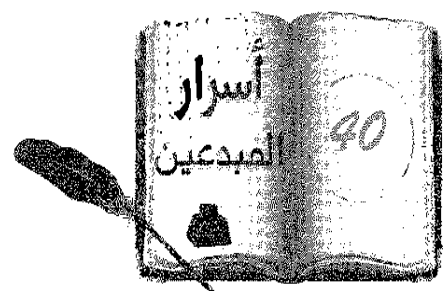 أسرار
المبدعين
40